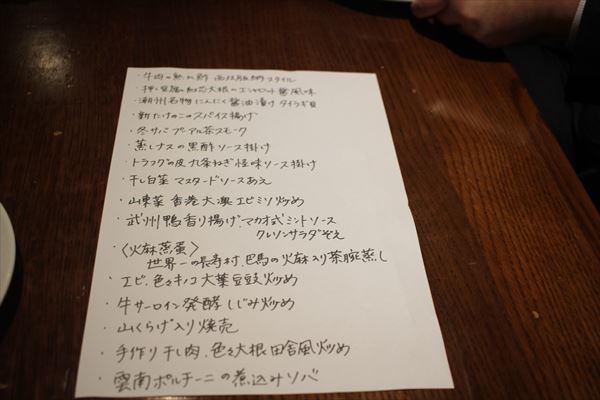 ・牛肉の熟れ鮓 西双版納スタイル
・押し豆腐と紅芯大根のエシャロット醤風味
・潮州名物 にんにく醤油漬け タイラギ貝
・新たけのこのスパイス揚げ
・冬サバ プーアル茶スモーク
・蒸しナスの黒酢ソース掛け
・トラフグの皮 九条ねぎ 怪味ソース掛け
・干し白菜 マスタードソースあえ
・山東菜 香港大澳エビミソ炒め
・武州鴨 香り揚げ、マカオ式ミントソース
クレソンサラダぞえ
・〈火麻蒸蛋〉
世界一の長寿村、巴馬の火麻入り茶腕蒸し
・エビ、色々キノコ 大葉豆豉炒め
・牛サーロイン発酵しじみ炒め
・山くらげ入り焼売
・手作り干し肉、色々大根 田舎風炒め
・雲南ポルチーニの煮込みソバ